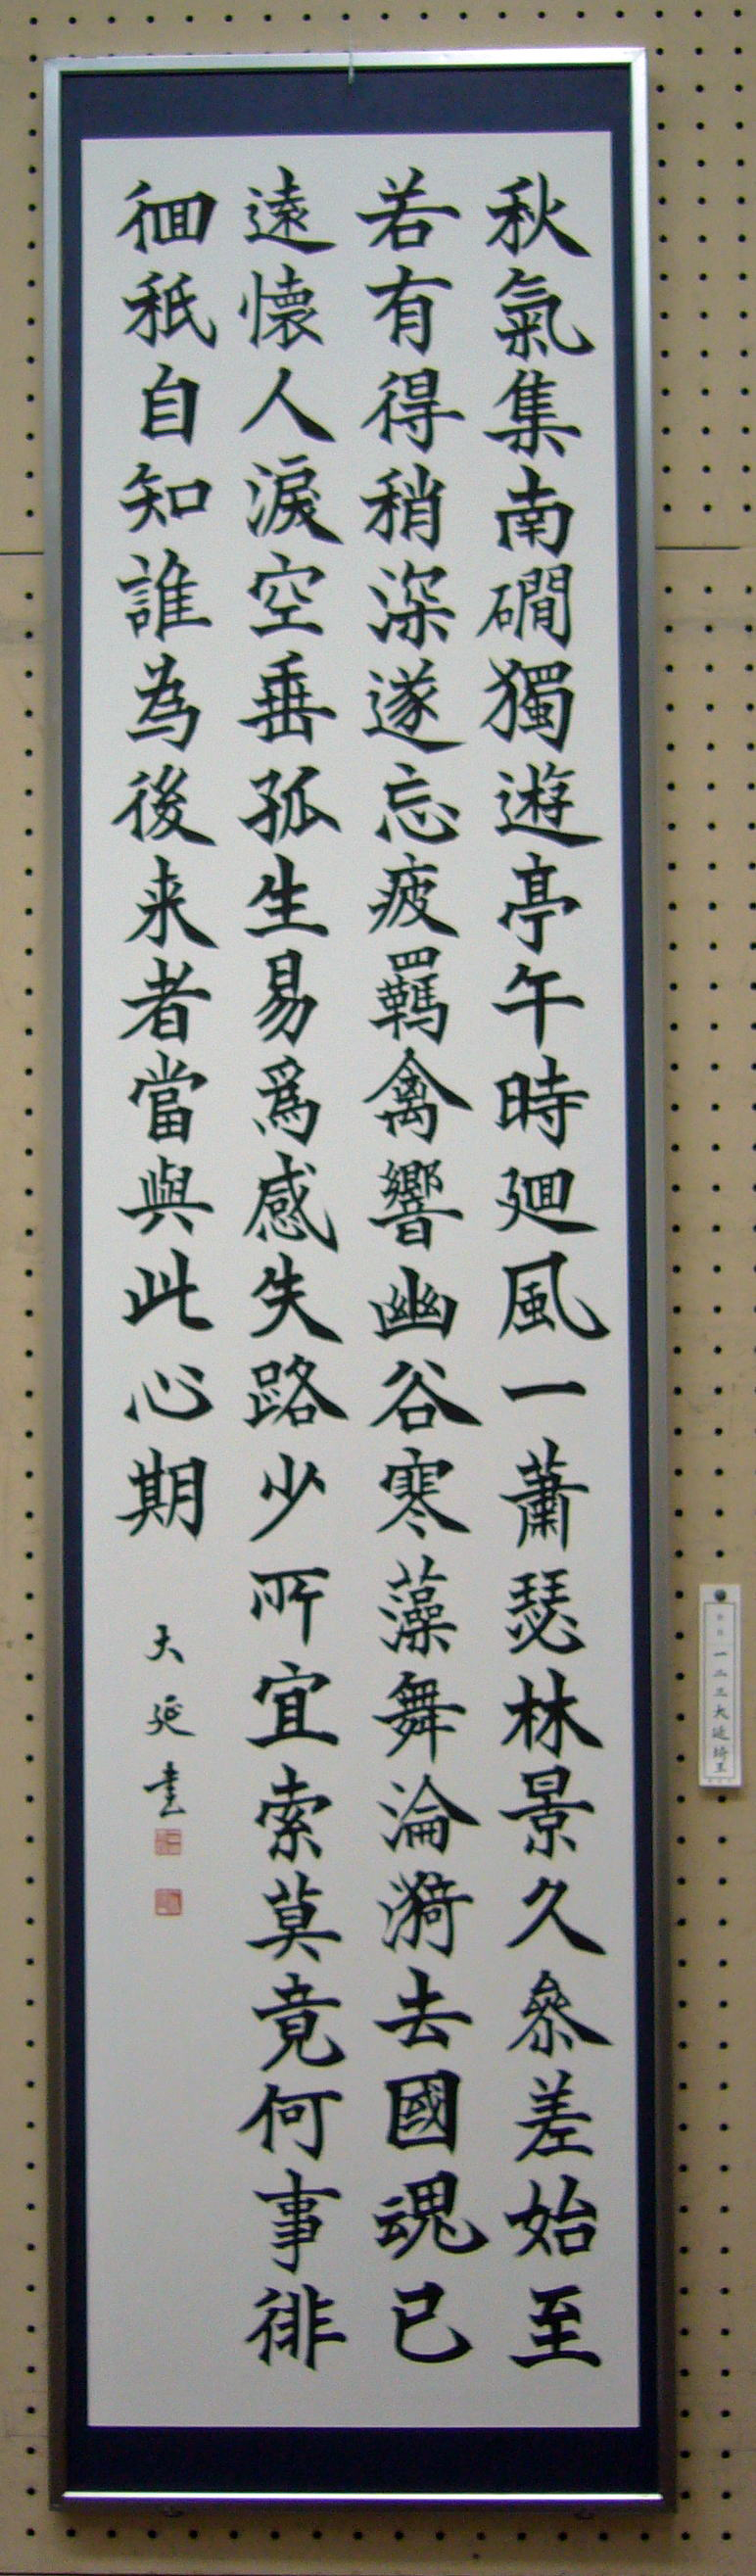 秋氣集南磵獨遊亭午時廻風一蕭瑟林景久參差始至
若有得稍深遂忘疲羈禽響幽谷寒藻舞淪漪去國魂已
遠懷人淚空垂孤生易爲感失路少所宜索莫竟何事徘
徊秖自知誰為後来者當與此心期
大延書
一二三大延埼玉